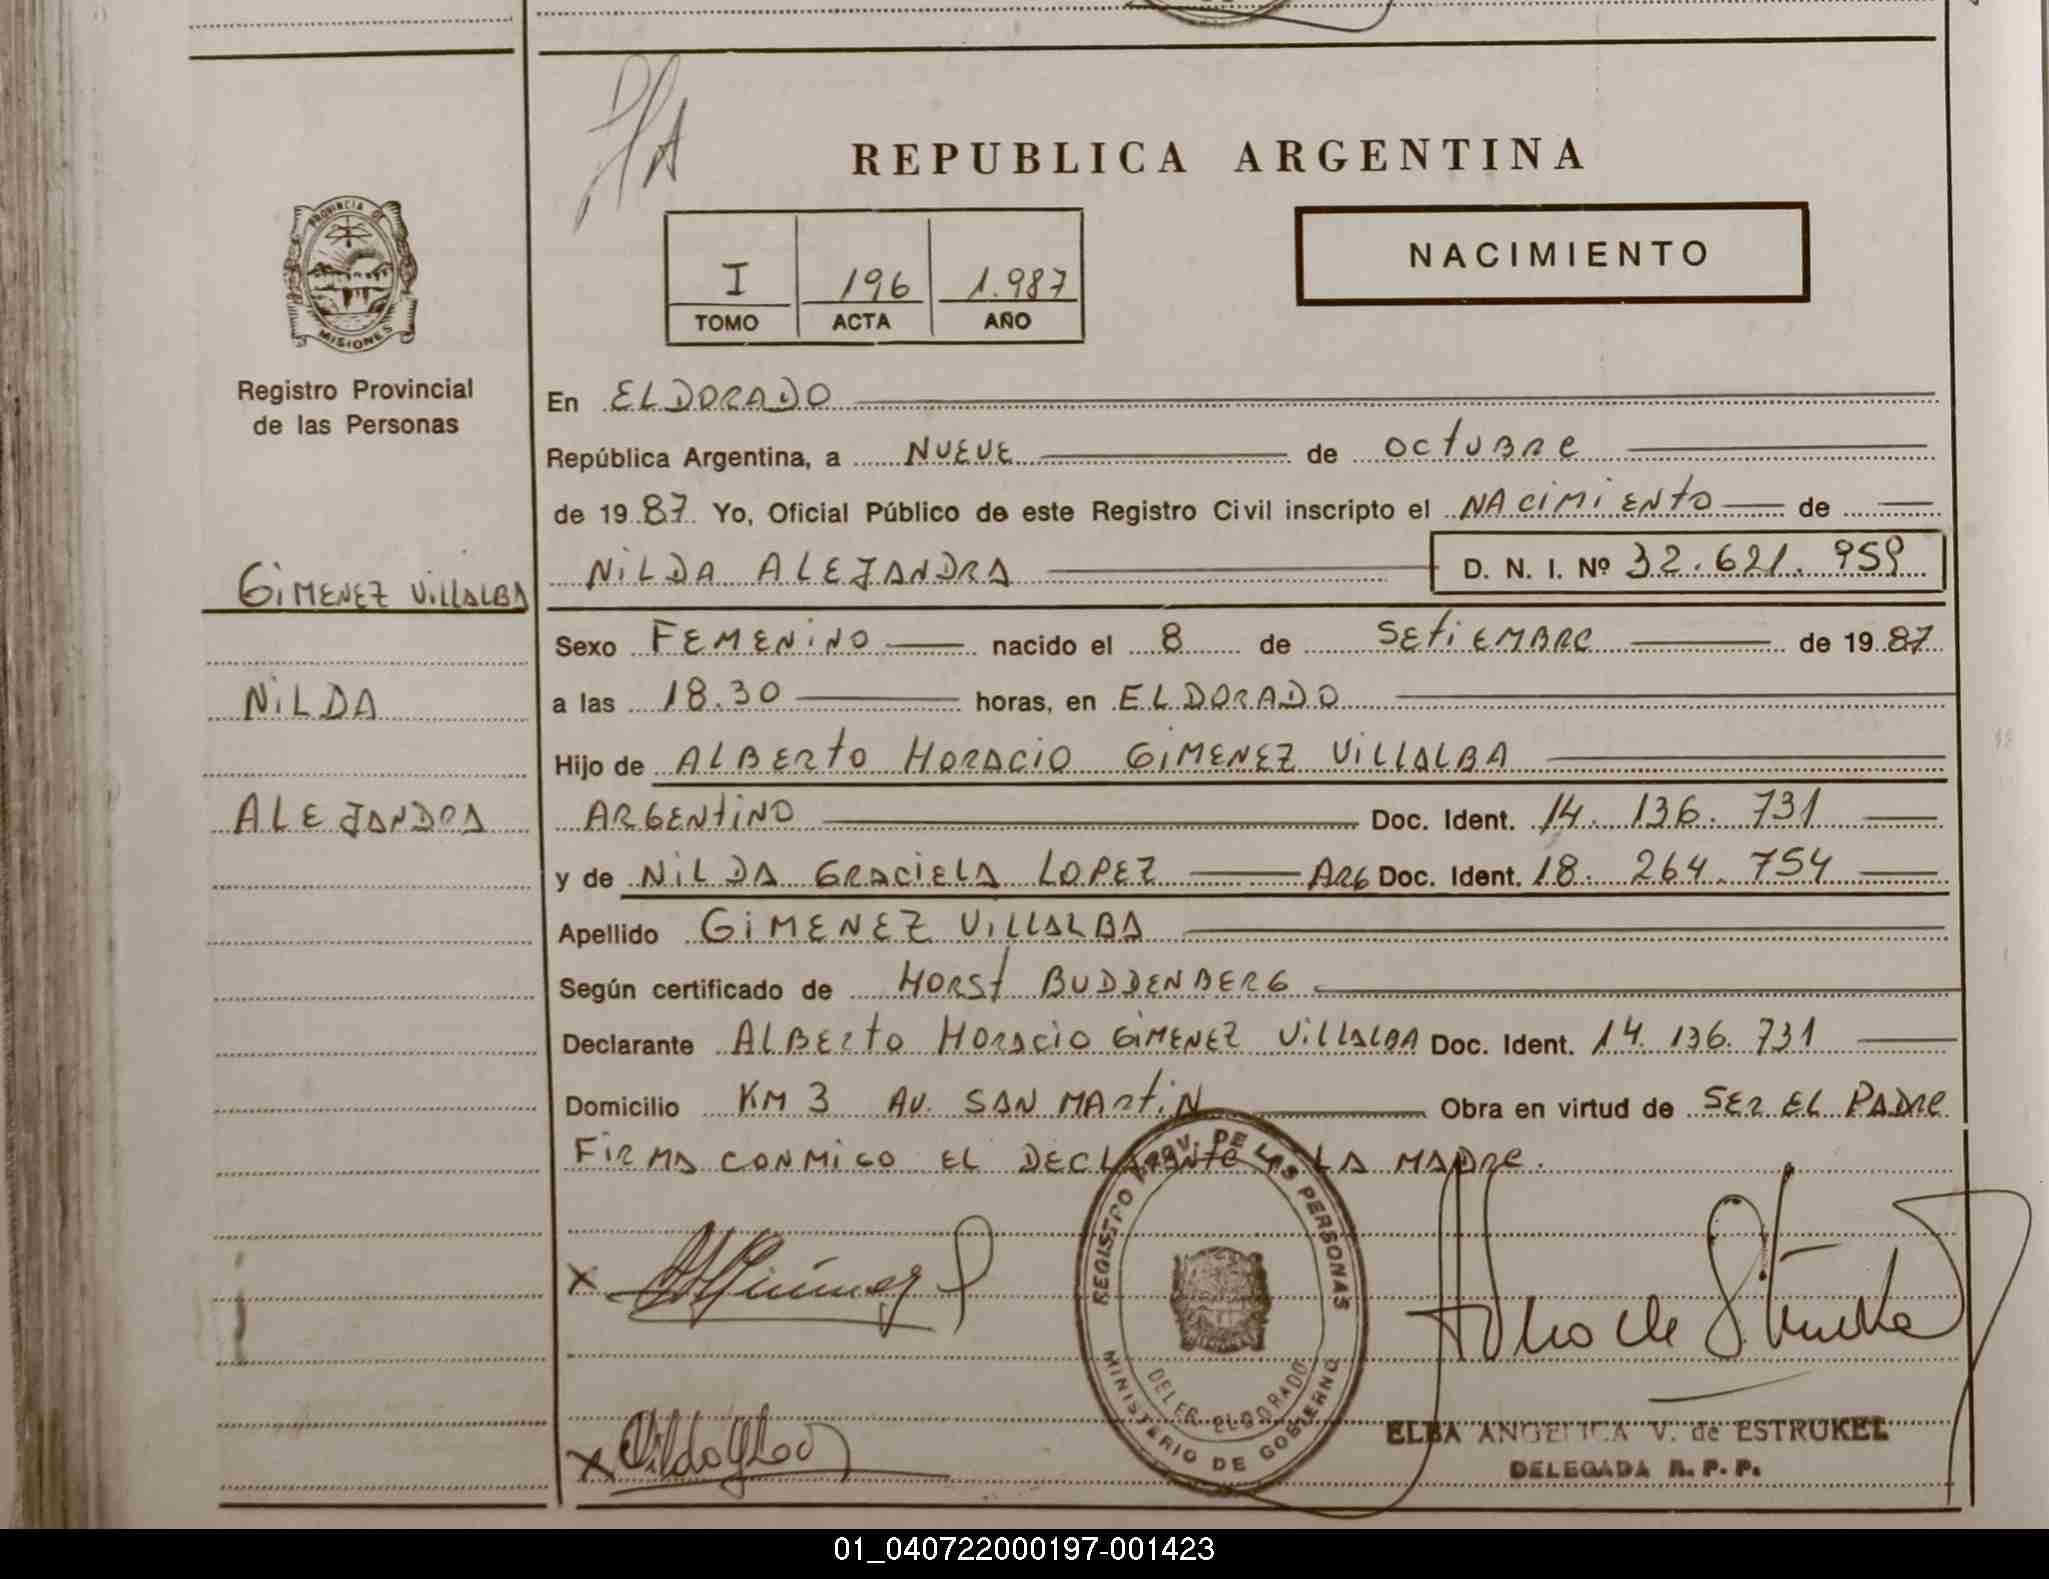 REPUBLICA ARGENTINA
PROVINCIA DE
MISIONES
Registro Provincial
de las Personas
I 196 1.987
TOMO ACTA AÑO
NACIMIENTO
En ELDORADO
República Argentina, a NUEVE de OCTUBRE
de 1987 Yo, Oficial Público de este Registro Civil inscripto el NACIMIENTO de
NILDA ALEJANDRA D. N. I. Nº 32.621.959
GIMENEZ VILLALBA
NILDA
ALEJANDRA
Sexo FEMENINO nacido el 8 de SETIEMBRE de 1987
a las 18.30 horas, en ELDORADO
Hijo de ALBERTO HORACIO GIMENEZ VILLALBA
ARGENTINO Doc. Ident. 14. 136. 731
y de NILDA GRACIELA LOPEZ ARG Doc. Ident. 18. 264. 754
Apellido GIMENEZ VILLALBA
Según certificado de HORST BUDDENBERG
Declarante ALBERTO HORACIO GIMENEZ VILLALBA Doc. Ident. 14. 136. 731
Domicilio KM 3 AV. SAN MARTIN Obra en virtud de SER EL PADRE
FIRMA CONMIGO EL DECLARANTE Y LA MADRE.
REGISTRO PROV. DE LAS PERSONAS
MINISTERIO DE GOBIERNO
ELDORADO
ELBA ANGELICA V. de ESTRUKEL
DELEGADA R. P. P.
01_040722000197-001423